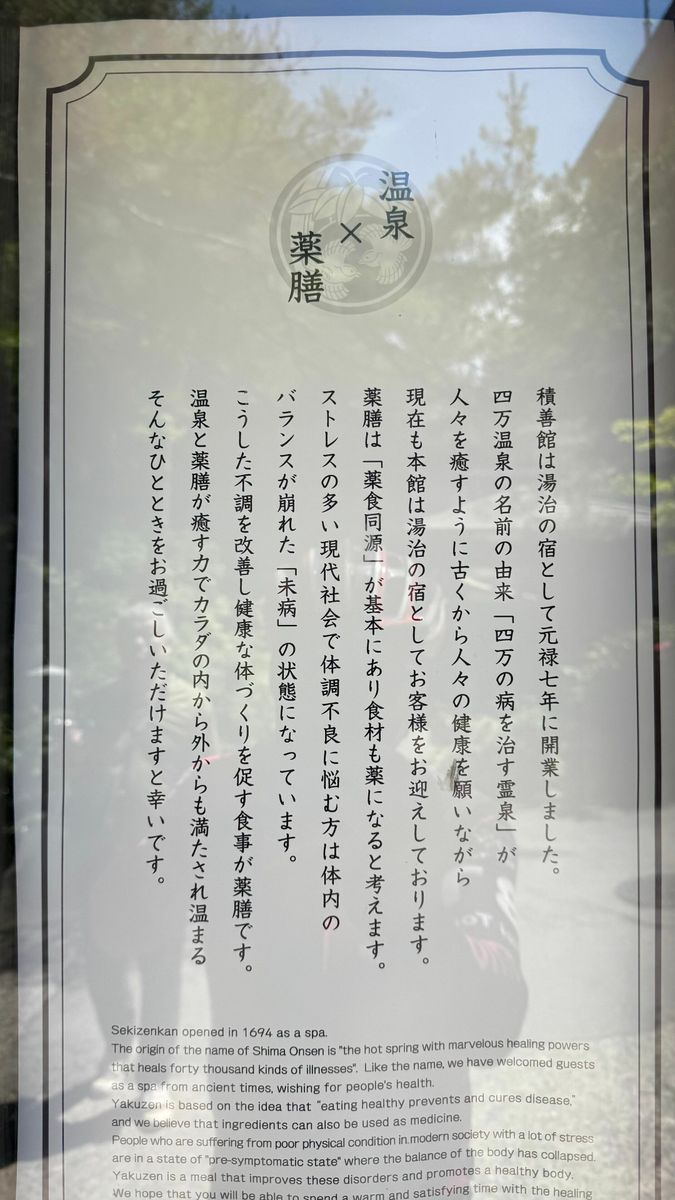 温泉
×
薬膳
積善館は湯治の宿として元禄七年に開業しました。
四万温泉の名前の由来「四万の病を治す霊泉」が
人々を癒すように古くから人々の健康を願いながら
現在も本館は湯治の宿としてお客様をお迎えしております。
薬膳は「薬食同源」が基本にあり食材も薬になると考えます。
ストレスの多い現代社会で体調不良に悩む方は体内の
バランスが崩れた「未病」の状態になっています。
こうした不調を改善し健康な体づくりを促す食事が薬膳です。
温泉と薬膳が癒す力でカラダの内から外からも満たされ温まる
そんなひとときをお過ごしいただけますと幸いです。
Sekizenkan opened in 1694 as a spa.
The origin of the name of Shima Onsen is "the hot spring with marvelous healing powers
that heals forty thousand kinds of illnesses". Like the name, we have welcomed guests
as a spa from ancient times, wishing for people's health.
Yakuzen is based on the idea that "eating healthy prevents and cures disease,"
and we believe that ingredients can also be used as medicine.
People who are suffering from poor physical condition in modern society with a lot of stress
are in a state of "pre-symptomatic state" where the balance of the body has collapsed.
Yakuzen is a meal that improves these disorders and promotes a healthy body.
We hope that you will be able to spend a warm and satisfying time with the healing